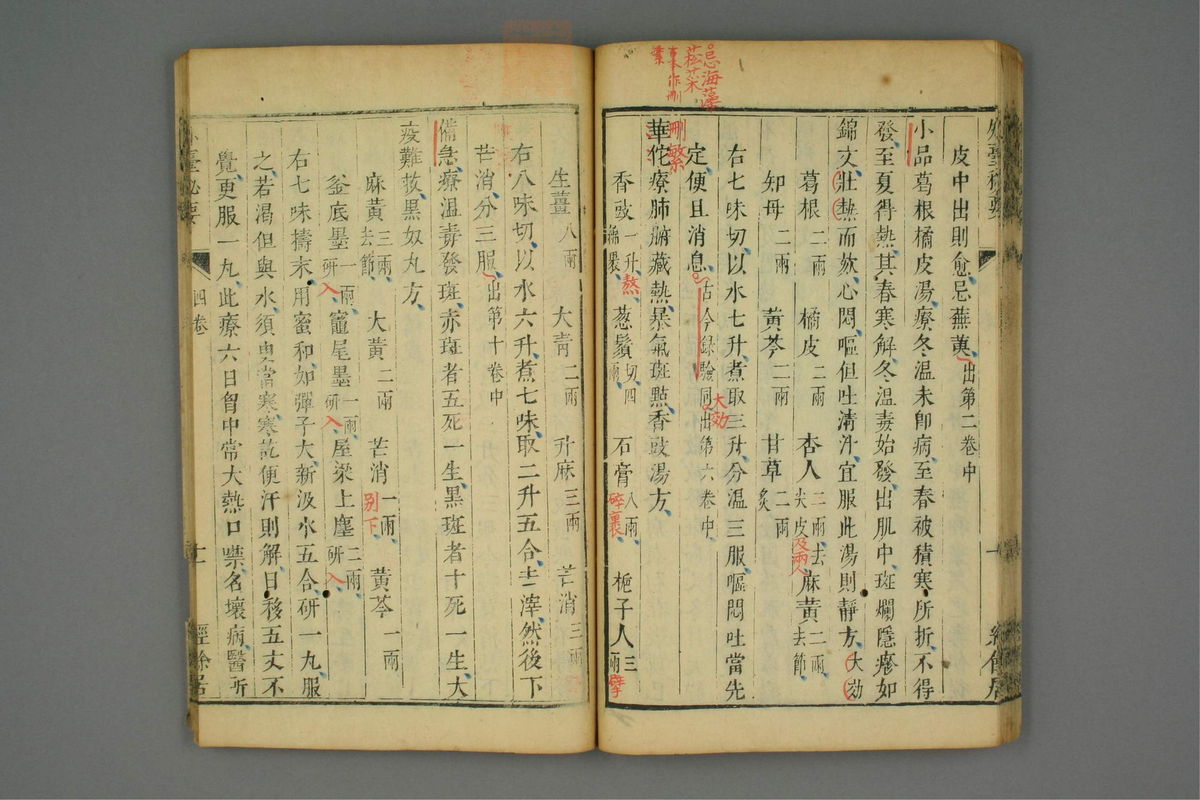 忌海藻
菘菜
皮中出則愈忌蕪荑出第二卷中
小品葛根橘皮湯療冬溫未卽病至春被積寒所折不得
發至夏得熱其春寒解冬溫毒始發出肌中斑爛隱疹如
錦文壯熱而欬心悶嘔但吐清汁宜服此湯則靜方大効
葛根二兩 橘皮二兩 杏人二兩去尖皮及兩人 麻黃二兩去節
知母二兩 黃芩二兩 甘草二兩炙
右七味切以水七升煮取三升分溫三服嘔悶吐當先
定便且消息古今錄驗同出第六卷中
大効
刪繁
華佗療肺腑藏熱暴氣斑點香豉湯方
香豉一升綿裹熬 葱鬚切四兩 石膏八兩碎裹 梔子人三兩擘
生薑八兩 大青二兩 升麻三兩 芒消三兩
右八味切以水六升煮七味取二升五合去滓然後下
芒消分三服出第十卷中
備急療溫毒發斑赤斑者五死一生黑斑者十死一生大
疫難救黑奴丸方
麻黃三兩去節 大黃二兩 芒消一兩別下 黃芩一兩
釜底墨一兩研入 竈尾墨一兩研入 屋梁上塵二兩研入
右七味擣末用蜜和如彈子大新汲水五合研一丸服
之若渴但與水須臾當寒寒訖便汗則解日移五丈不
覺更服一丸此療六日胷中常大熱口噤名壞病醫所
臺秘要
四卷
十一
經餘居